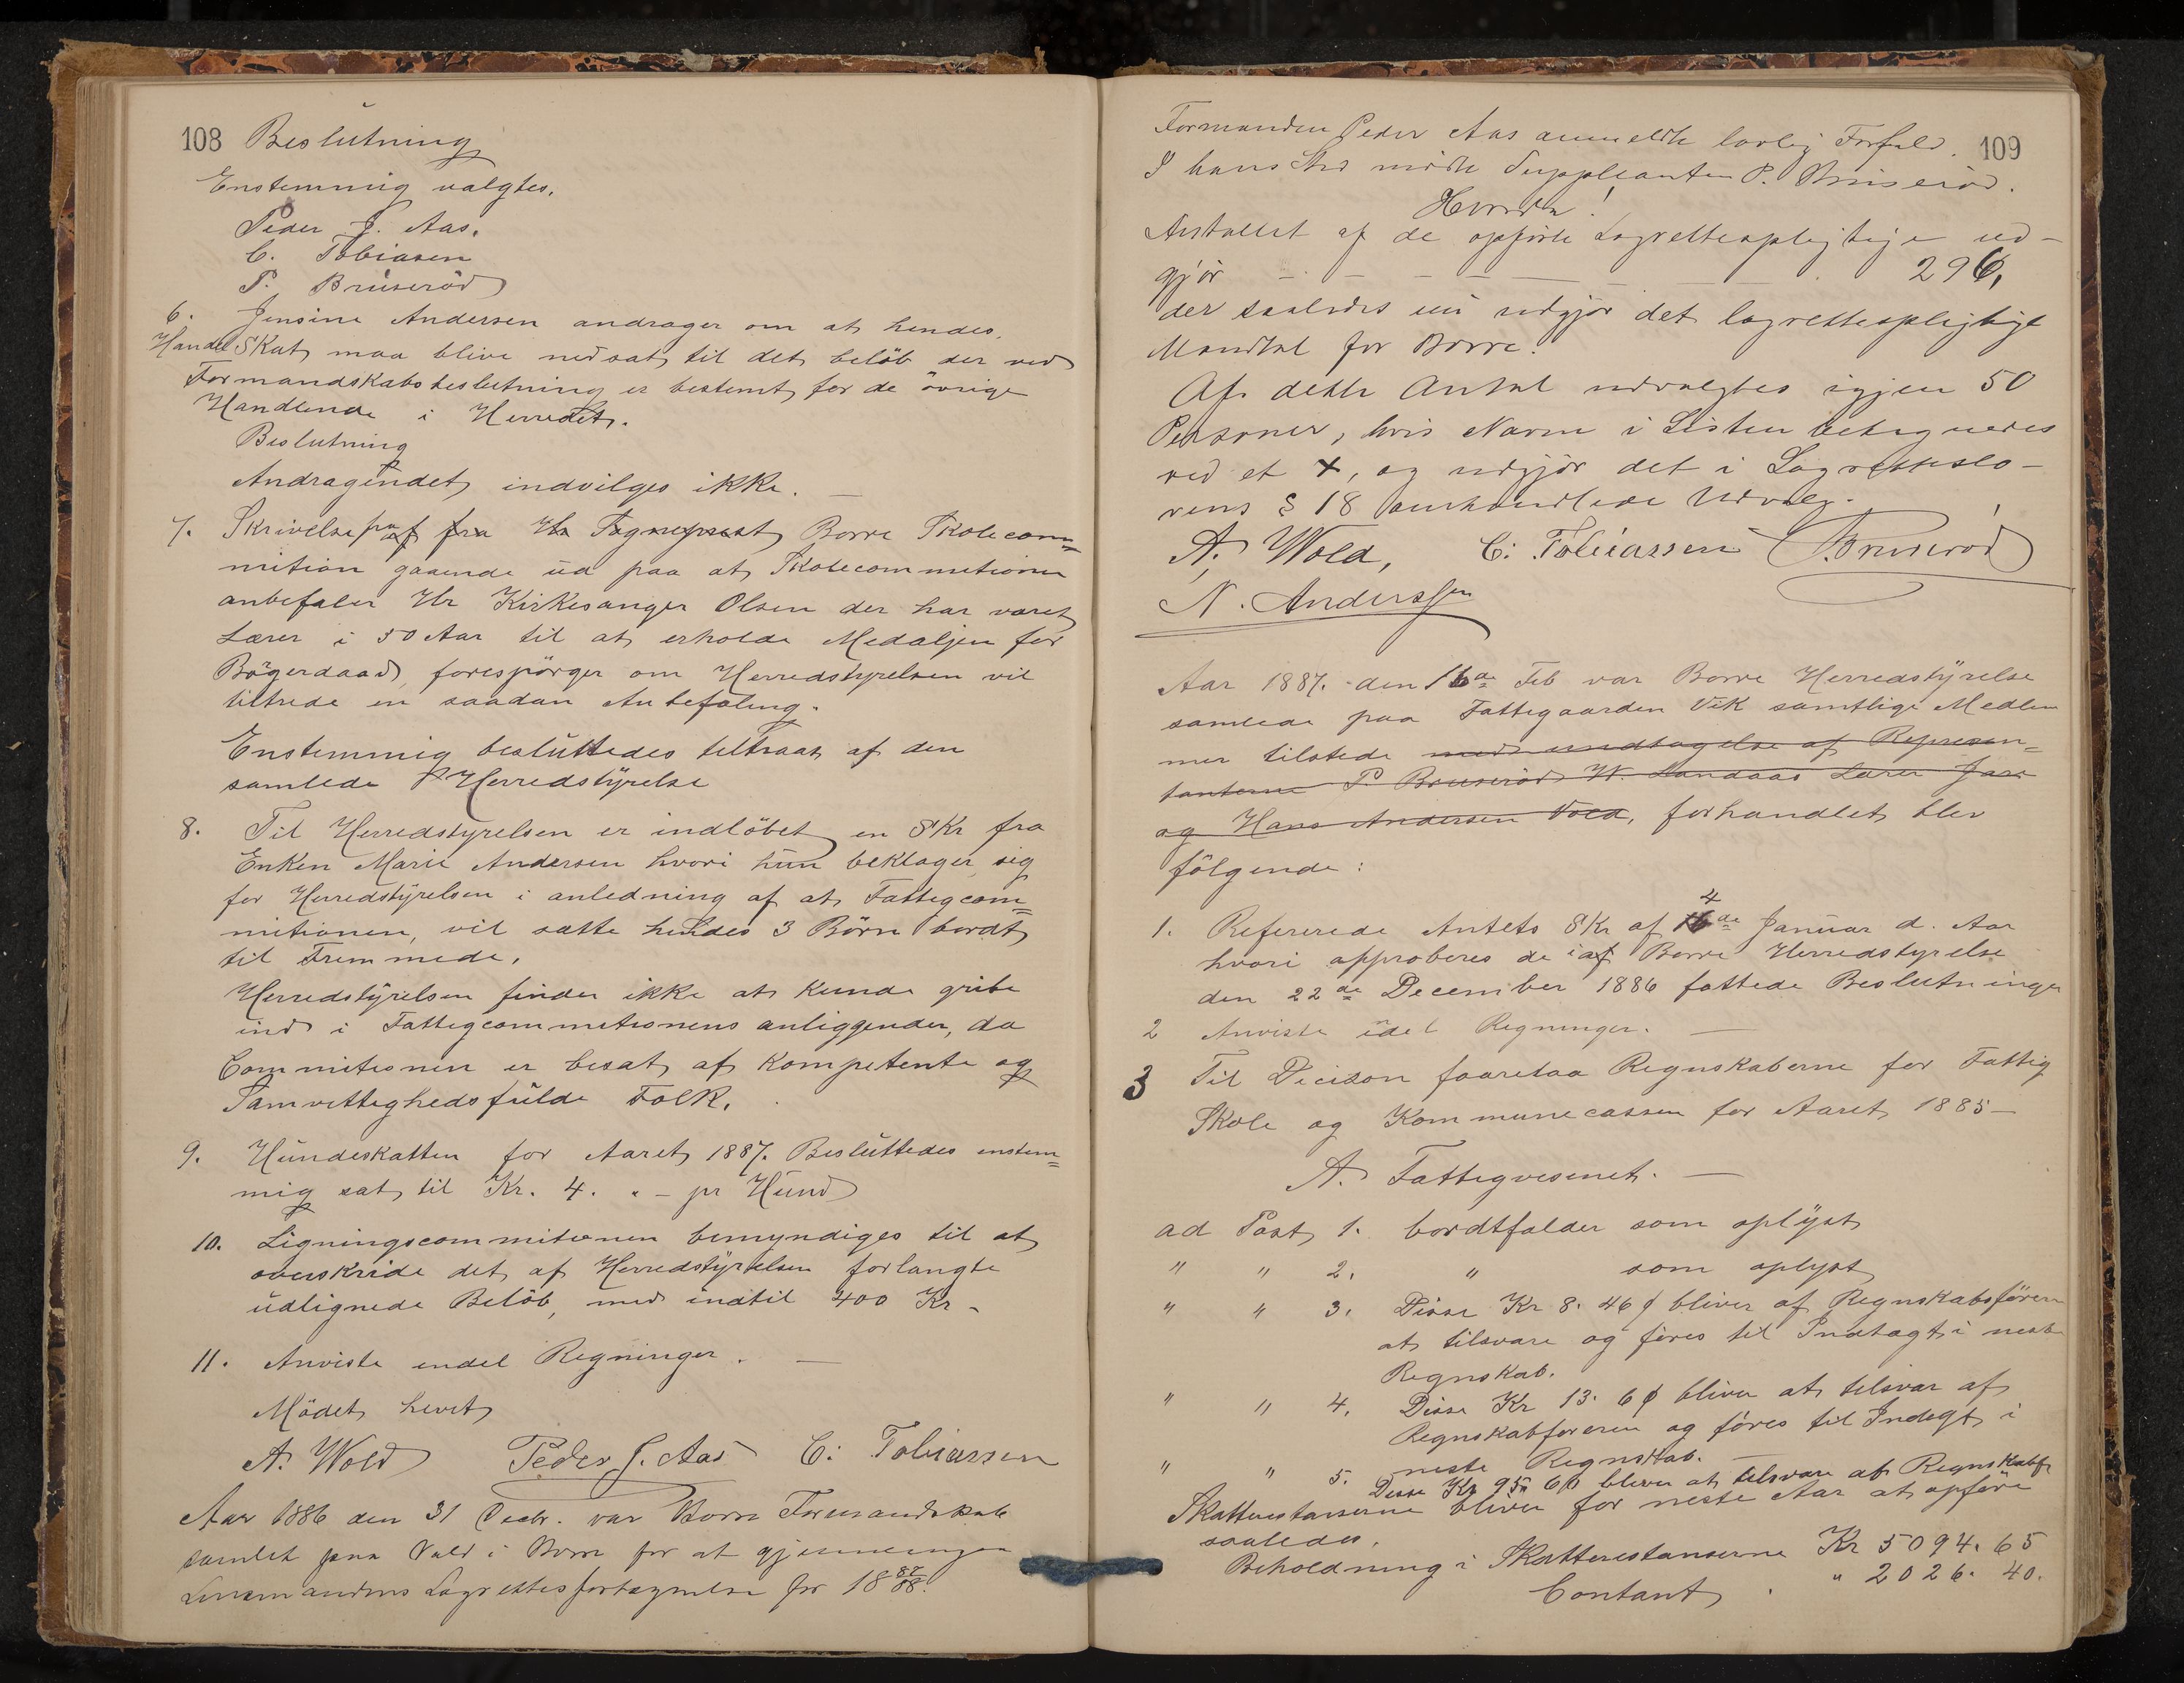 108 Beslutning
Enstemmig valgtes.
Peder J. Aas.
C. Tobiasen
P. Bruseröd
6. Jensine Andersen andrager om at hendes
Handel Skat maa blive nedsat til det belöb der ved
Formandskabsbeslutning er bestemt for de övrige
Handlende i Herredet.
Beslutning
Andragendet indvilges ikke. —
7. Skrivelse fra Borre Skolecom=
mition gaaende ud paa at Skolecommetionen
anbefaler Hr Kirkesanger Olsen der har været
Lærer i 50 Aar til at erholde Medaljen for
Börgerdaad, forespörger om Herredstyrelsen vil
tiltrede en saadan Anbefaling.
Enstemmig besluttedes teltraat af den
samlede Herredstyrelse
8. Til Herredstyrelsen er indlöbet en Skr fra
Enken Marie Andersen hvori hun beklager sig
for Herredstyrelsen i anledning af at Fattegcom=
mitionen, vil sætte hendes 3 Börn bordt
til Fremmede.
Herredstyrelsen finder ikke at kunde gribe
ind i Fattegcommetionens anliggender, da
Commitionen er besat af Kompetente og
Samvettighedsfulde Folk.
9. Hundeskatten for Aaret 1887. Besluttedes enstem=
mig sat til Kr. 4. " — pr Hund
10. Ligningscommitionen bemyndiges til at
overskride det af Herredstyrelsen forlangte
udlignede Belöb, med indtil 400 Kr —
11. Anviste endel Regninger. —
Mödet hevet
A. Wold Peder J. Aas C: Tobiassen
Aar 1886 den 31 Decbr. var Borre Formandskab
samlet paa Vold i Borre for at gjennemgaa
Lensmandens Lagrettesfortegnelse for 18 87/88.
Formanden Peder Aas anmeldte lovlig Forfald. 109
I hans Sted mödte Suppleanten P. Bruseröd.
Herredn!
Antallet af de opförte Lagrettespligtige ud-
gjör — — — — — 296,
der saaledes nu udgjör det lagrettespligtige
Mandtal for Borre.
Af dette Antal udvalgtes igjen 50
Personer, hvis Navne i Listen betegnedes
ved et X, og udgjör det i Lagretteslo-
vens § 18 omhandlede Udvalg.
A. Wold, C: Tobiassen P. Bruseröd
N. Anderssen
Aar 1887. den 16de Feb var Borre Herredstyrelse
samlede paa Fattegaarden Vik samtlige Medlem
mer tilstede med undtagelse af Represen=
tanterne P. Bruseröd W. Sandaas Lærer
og Hans Andersen Vold, forhandlet blev
fölgende:
1. Refererede Amtets Skr af 14de Januar d. Aar
hvori approberes de af Borre Herredstyrelse
den 22de December 1886 fattede Beslutninger
2 Anviste edel Regninger. —
3 Til Decison faaretaa Regnskaberne for Fattig
Skole og Kommunecassen for Aaret 1885 —
A. Fattegvesenet. —
ad Post 1. bordtfalder som oplyst
" " 2. " som oplyst
" " 3. Disse Kr 8. 46 ø bliver af Regnskabsföreren
at tilsvare og föres til Indtægt i neste
Regnskab.
" " 4. Disse Kr 13. 6 ø bliver at tilsvar af
Regnskabföreren og föres til Indegt i
neste Regnskab.
" " 5. Disse Kr 95 60 bliver at tilsvare af Regnskabf
Skatterestanserne bliver for neste Aar at opföre
saaledes.
Beholdning i Skatterestanserne Kr 5094. 65
Contant " 2026. 40.